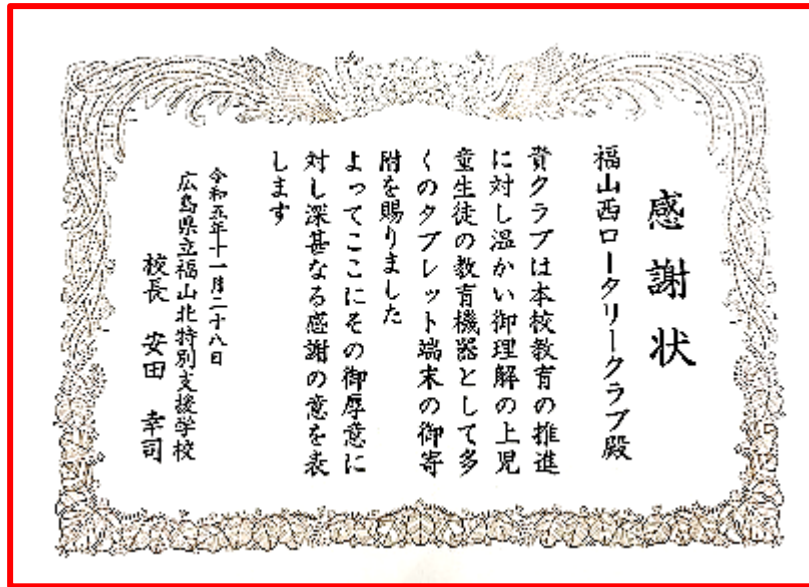 感謝状
福山西ロータリークラブ殿
貴クラブは本校教育の推進
に対し温かい御理解の上児
童生徒の教育機器として多
くのタブレット端末の御寄
附を賜りました
よってここにその御厚意に
対し深甚なる感謝の意を表
します
令和五年十一月二十八日
広島県立福山北特別支援学校
校長 安田 幸司